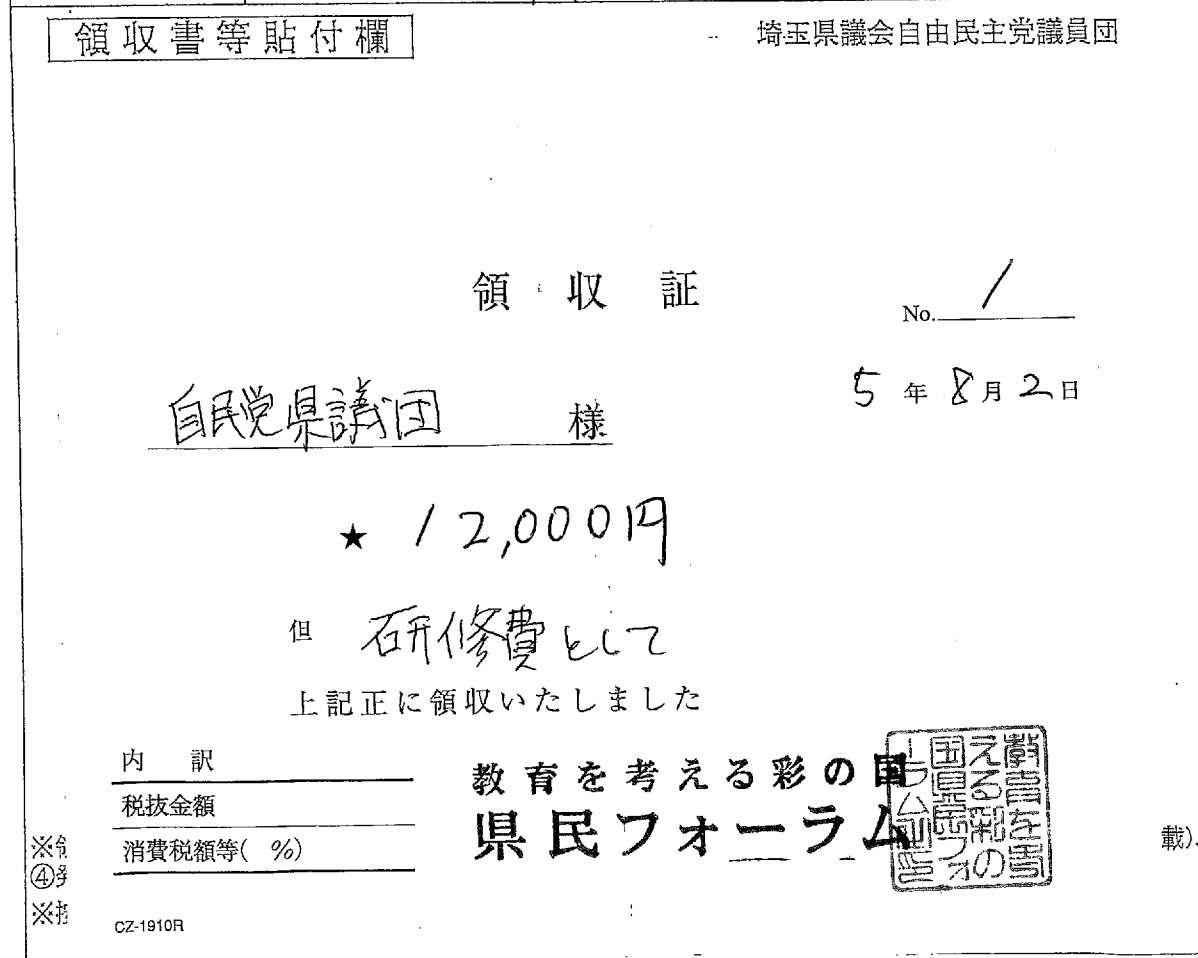 領収書等貼付欄
埼玉県議会自由民主党議員団
領収証
No. 1
5年8月2日
自民党県議団 様
★ 12,000円
但 研修費として
上記正に領収いたしました
内訳
税抜金額
消費税額等( %)
教育を考える彩の国
県民フォーラム
教育を考
える彩の
国県民フォ
ーラム印
※領
④
※
載).
CZ-1910R